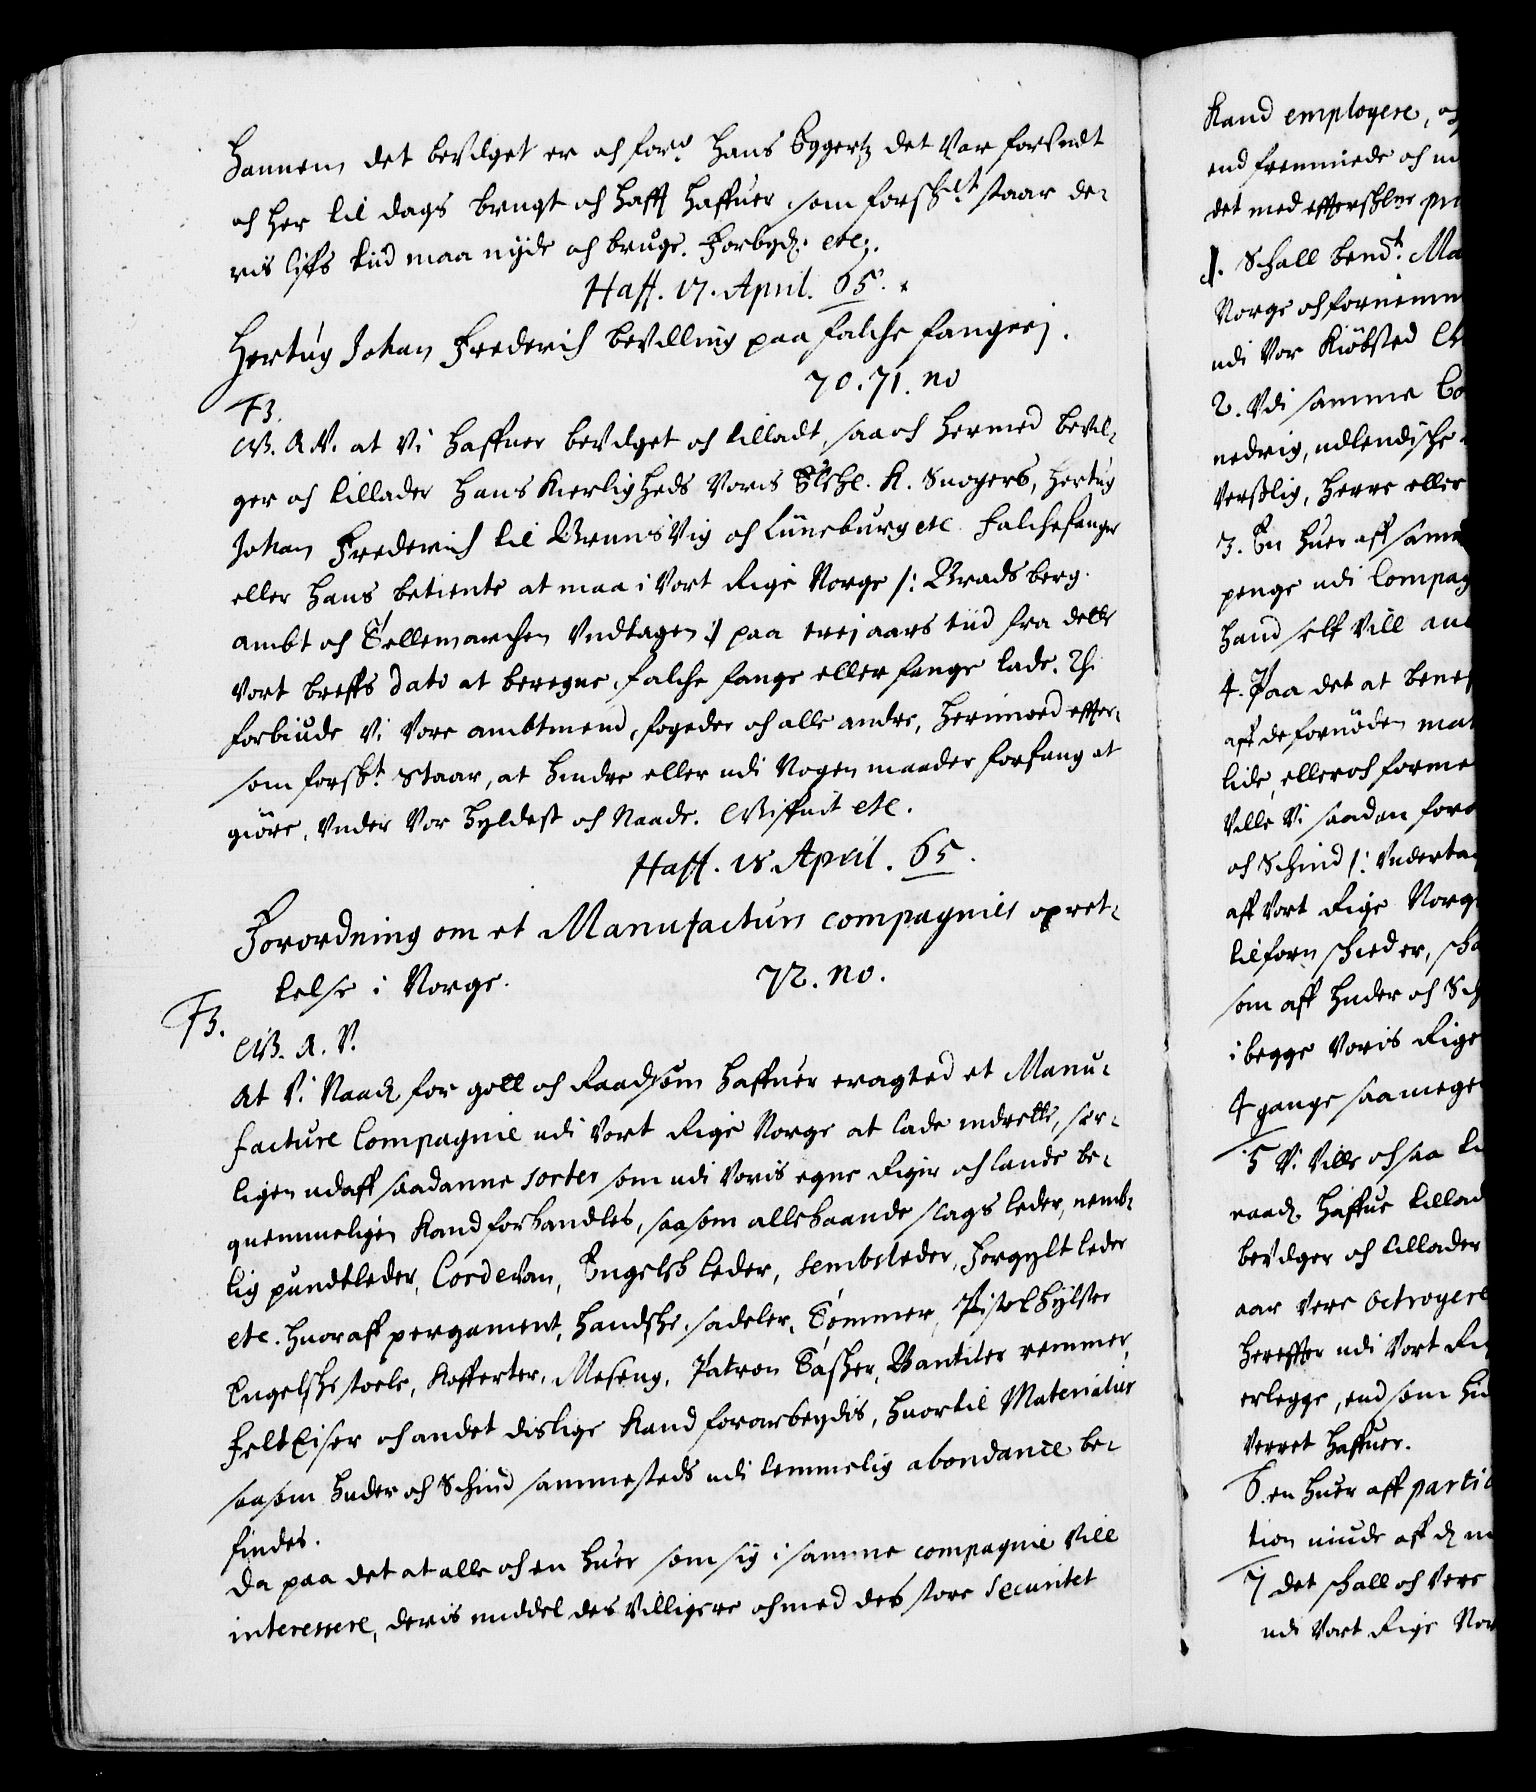 hannem det bevilget er och for: Hans Eggertz det var forundt
och her til dags brugt och hafft haffuer, som forschr. staar de-
ris lifs tiid maa nyde och bruge. Forbydz. etc.
Haff. 17. April. 65.
Hertug Johan Frederich bevilling paa falche fangerj.
70. 71. no
F3.
G. A. V. at Vi haffuer bevilget och tilladt, saa och hermed bevil-
ger och tillader Hans Kierligheds Voris Elschl. K. Suogers, Hertug
Johan Frederich til Brunsvig och Lüneburg etc. falchefanger
eller hans betiente at maa i Vort Rige Norge /: Bradsberg
ambt och Tellemarchen Undtagen :/ paa trej aars tiid fra dette
Vort breffs dato at beregne, falche fange eller fange lade. Th.
forbiude Vi Vore ambtmend, fogeder och alle andre, herimod effter-
som forscht. staar, at hindre eller udi Nogen maader forfang at
giöre, Under Vor hyldest och Naade. Giffuit etc.
Haff. 18 April. 65.
Forordning om et Manufacturs compagnies opret-
telse i Norge. 72. no.
F3.
G. A. V.
At Vi Naadz for gott och Raadsom haffuer eragted et Manu-
facture Compagnie udi Vort Rige Norge at lade indrette, sær-
ligen udaff saadanne sorter som udi Voris egne Riger och lande be-
quemmeligen Kand forhandles, saasom allehaande slags leder, nemb-
lig pundtleder, Cordevan, Engelsch leder, Sembsleder, Forgylt leder
etc. huoraff pergament, handsche, sadeler, Tömmer, Pistolhylster
Engelsche stoele, Kofferter, Meseng, Patron Tasker, Bantiler remmer,
Felteiser och andet dislige Kand forarbeydis, huortil Materialier
saasom huder och Schind sammesteds udi temmelig abondance be-
findes.
Da paa det at alle och en huer som sig i samme compagnie Vill
interessere, deris middel des villigere och med des store Securitet
Kand employere,
end fremmede och
det med effterschrne
1. Schall bendt.
Norge och fornemm
udi Vor Kiöbsted
2. Udi samme
nedrig, udlendische
Verslig, herre eller
3. En huer aff
penge udi Compag
hand self Vill
4. Paa det at
aff de fornöden
lide, eller och
Ville Vi saadan
och Schind /:
aff Vort Rige Norge
tilforn scheder,
som aff huder och
i begge Voris Rige
4 gange saameget
5 Vi Ville och saa
naadz. haffue tillad
bevilger och tillader
aar vere octroyere
hereffter udi Vort
erlegge, end som
verret haffuer.
6. en huer aff
tion niude aff
7 det schall och vere
udi Vort Rige